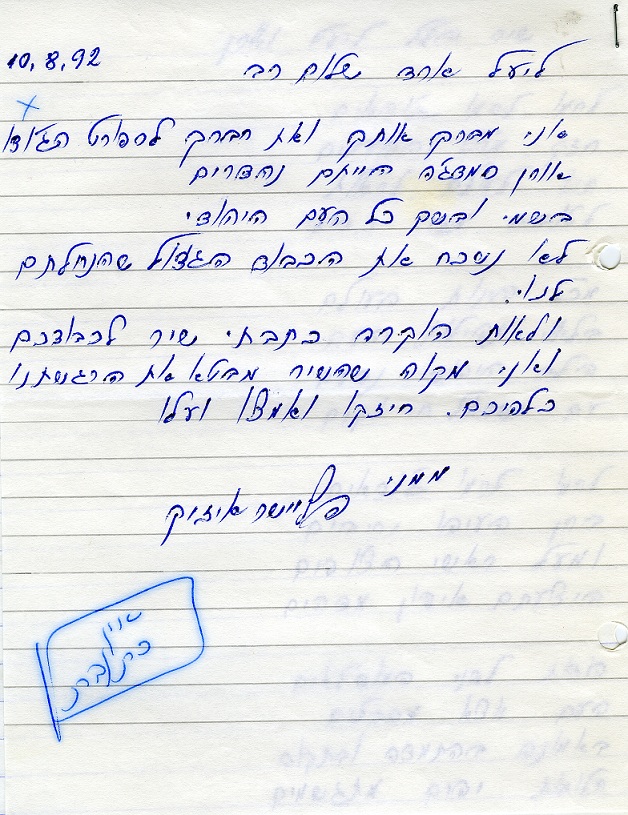 10.8.92
ליעל ארד שלום רב
אני מברך אותך ואת חברך לספורט הג'ודו
אורן סמדג'ה הייתם נהדרים
בשמי ובשם כל העם היהודי
לא נשכח את הכבוד הגדול שהנחלתם
לנו.
ולאות הוקרה כתבתי שיר לכבודכם
ואני מקוה שהשיר מבטא את הרגשתנו
כלפיכם. חיזקו ואמצו ועלו
ממני
פליישר איזיק
אין
כתובת